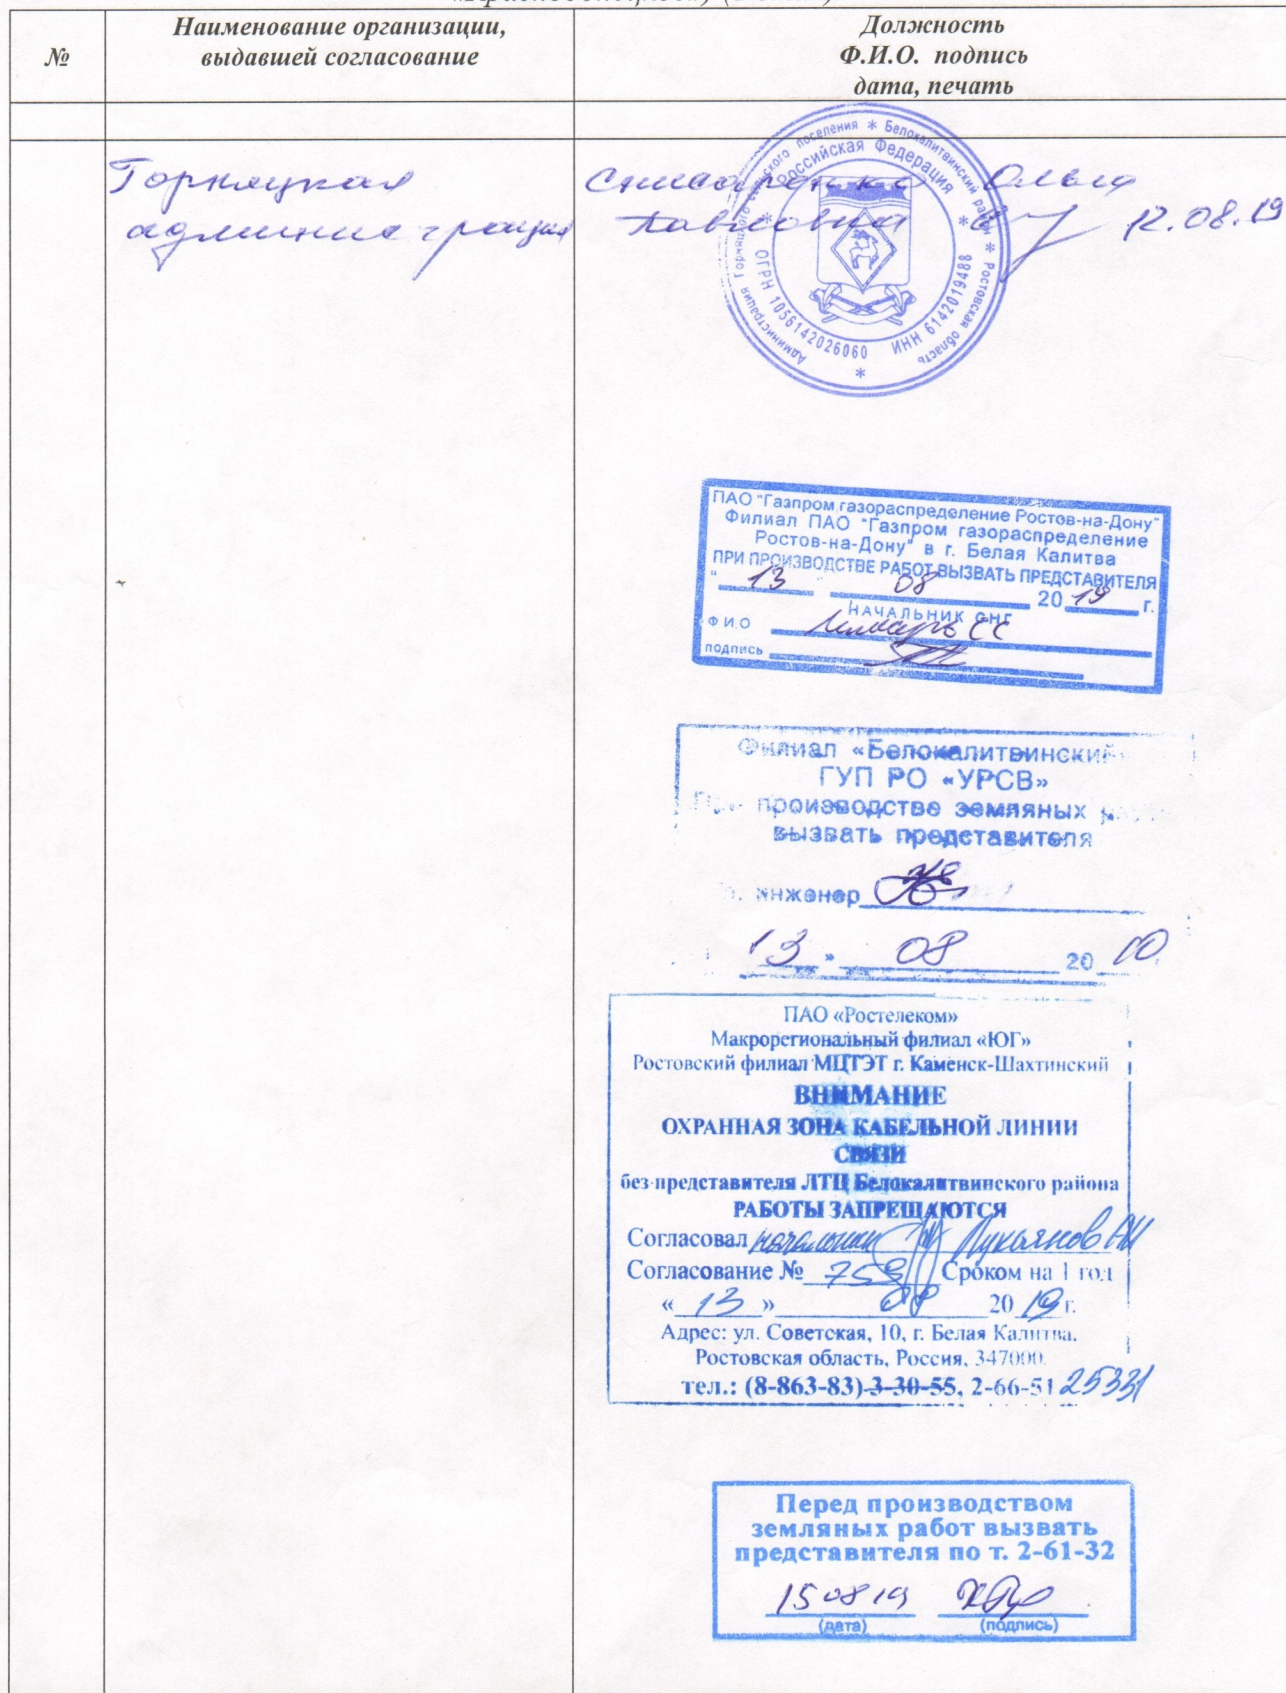 №
Наименование организации,
выдавшей согласование
Должность
Ф.И.О. подпись
дата, печать
Горняцкая
администрация
Ольга
Павловна
12.08.19
Администрация Горняцкого сельского поселения * Белокалитвинский район * Ростовская область
* Российская Федерация *
ОГРН 1056142026060 ИНН 6142019488
*
ПАО "Газпром газораспределение Ростов-на-Дону"
Филиал ПАО "Газпром газораспределение
Ростов-на-Дону" в г. Белая Калитва
ПРИ ПРОИЗВОДСТВЕ РАБОТ ВЫЗВАТЬ ПРЕДСТАВИТЕЛЯ
" 13 " 08 2019 г.
НАЧАЛЬНИК СНГ
Ф.И.О СС
подпись
Филиал «Белокалитвинский»
ГУП РО «УРСВ»
При производстве земляных
вызвать представителя
инженер
13 » 08 20
ПАО «Ростелеком»
Макрорегиональный филиал «ЮГ»
Ростовский филиал МЦТЭТ г. Каменск-Шахтинский
ВНИМАНИЕ
ОХРАННАЯ ЗОНА КАБЕЛЬНОЙ ЛИНИИ
СВЯЗИ
без представителя ЛТЦ Белокалитвинского района
РАБОТЫ ЗАПРЕЩАЮТСЯ
Согласовал начальник Лукьянов АИ
Согласование № 759 Сроком на 1 год
« 13 » 08 2019 г.
Адрес: ул. Советская, 10, г. Белая Калитва,
Ростовская область, Россия, 347000.
тел.: (8-863-83) 3-30-55, 2-66-51 25331
Перед производством
земляных работ вызвать
представителя по т. 2-61-32
150819
(дата) (подпись)